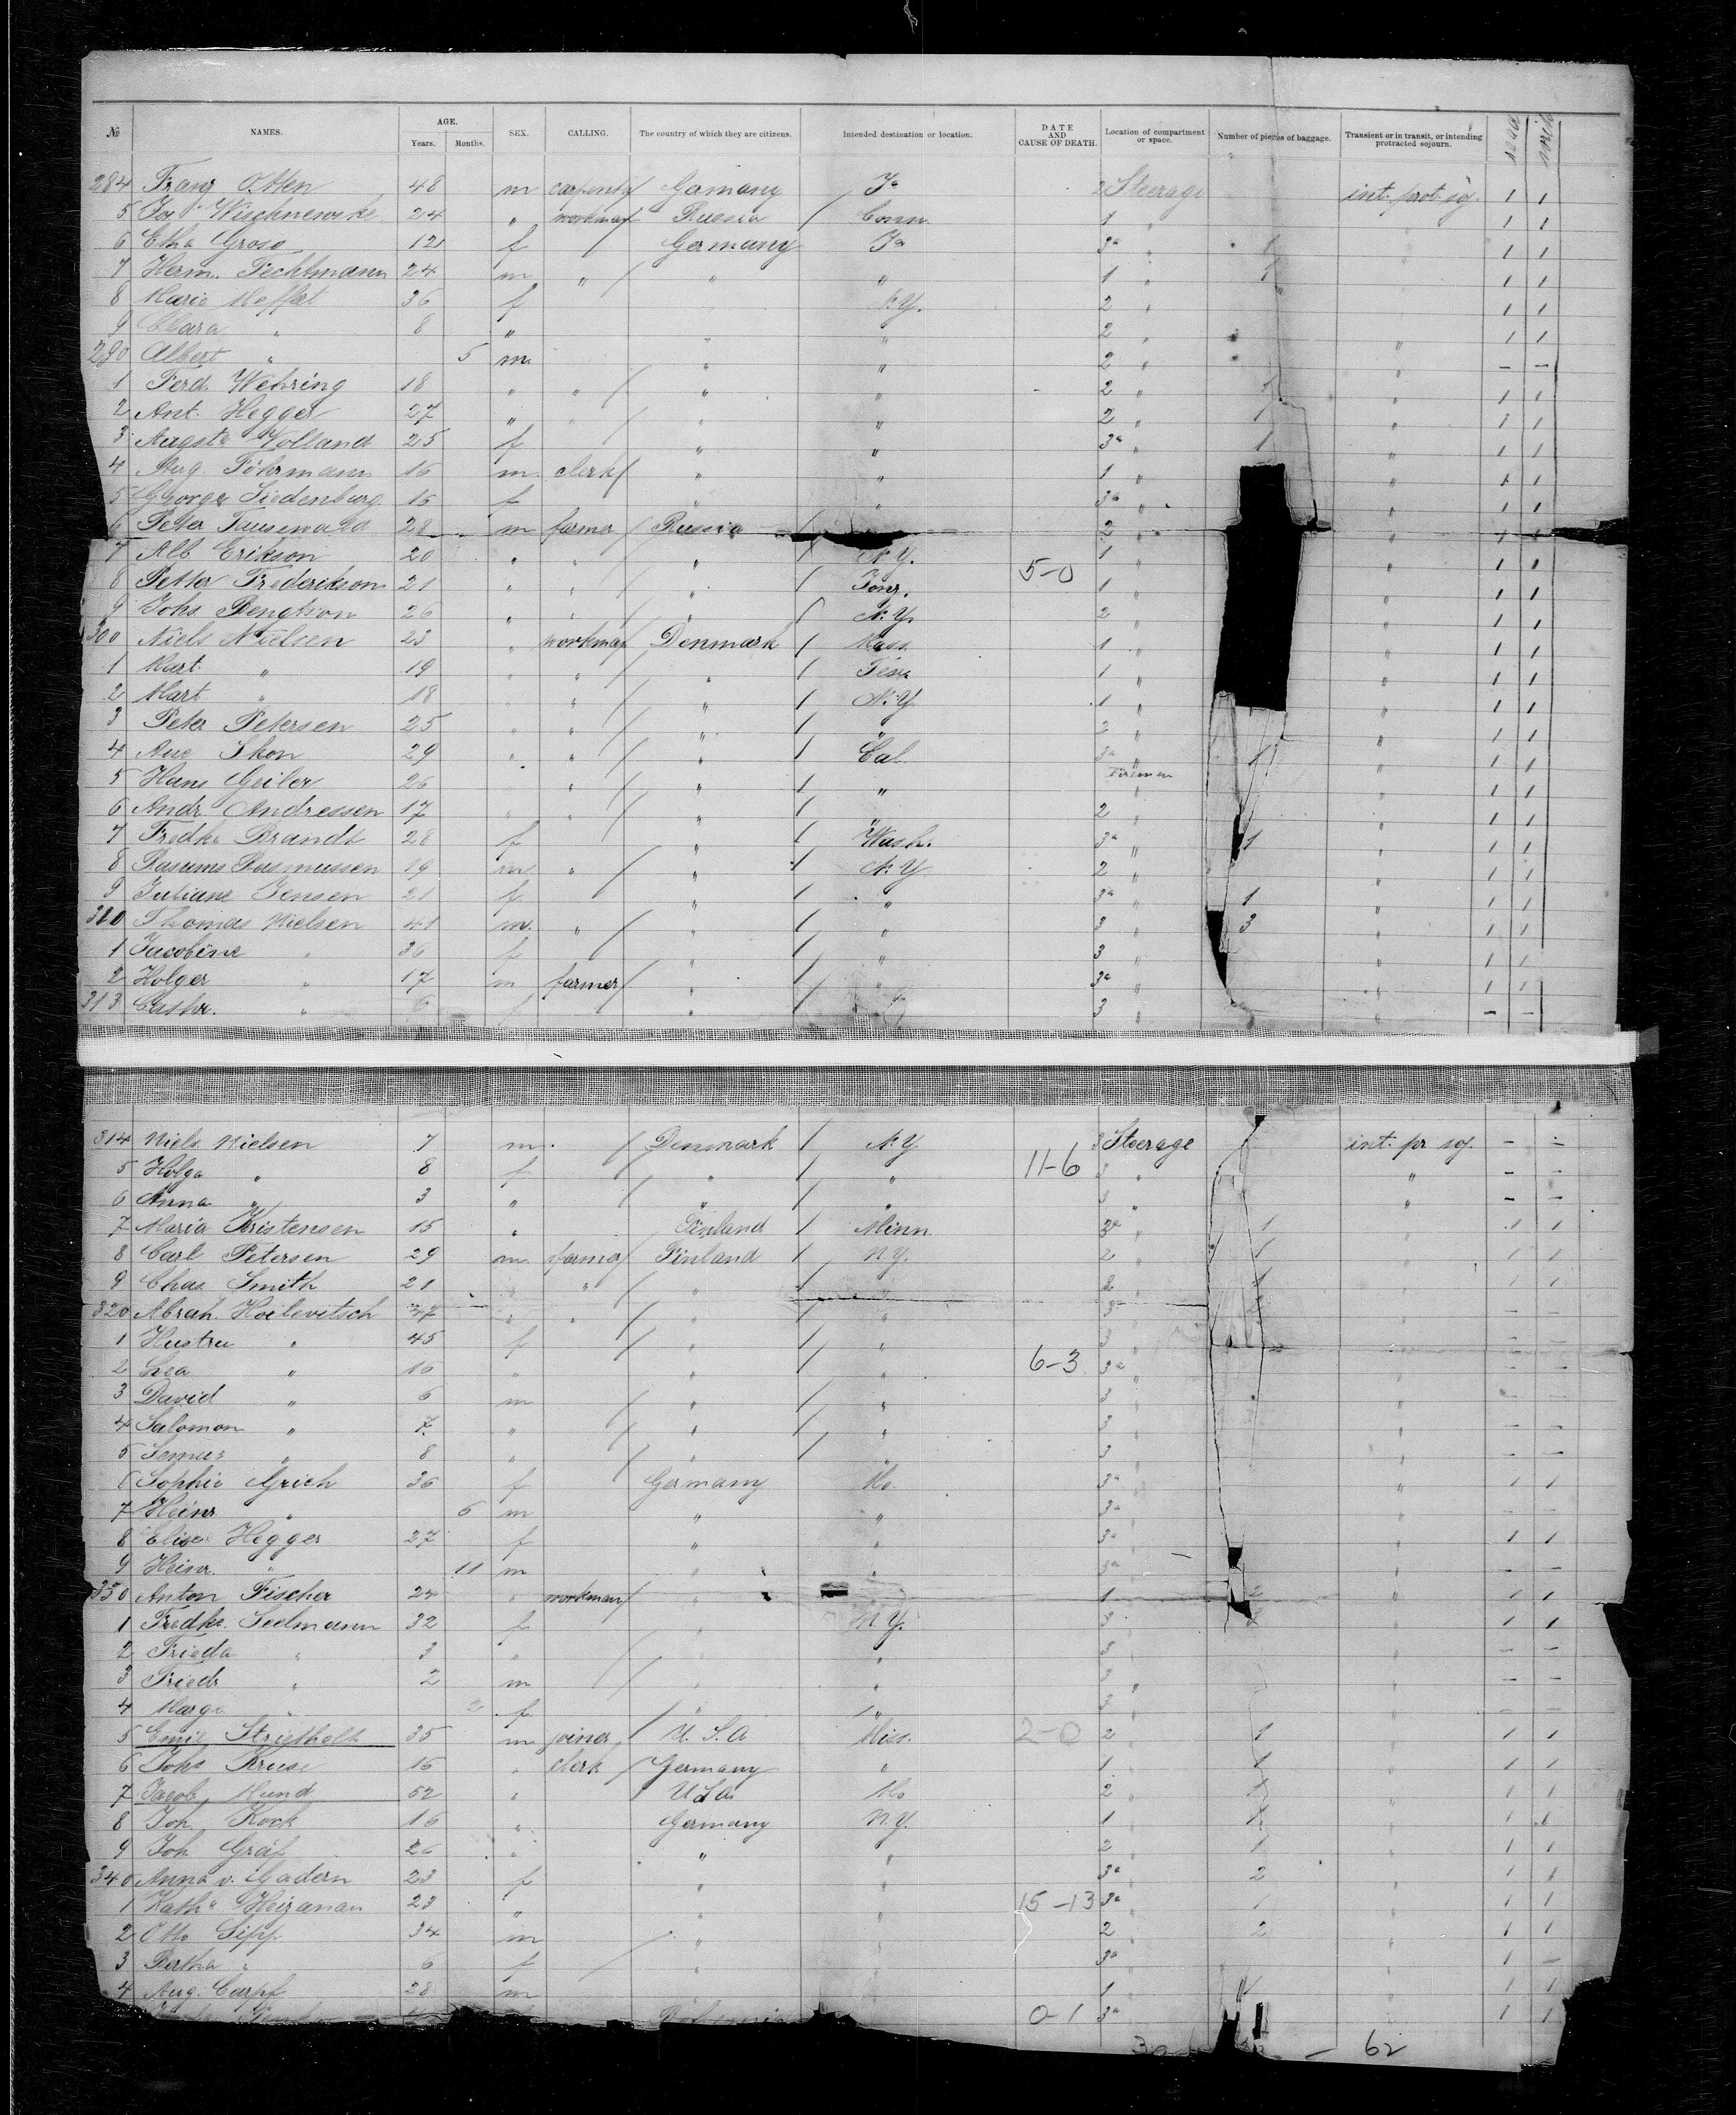 № NAMES. AGE. Years. Months. SEX. CALLING. The country of which they are citizens. Intended destination or location. DATE AND CAUSE OF DEATH. Location of compartment or space. Number of pieces of baggage. Transient or in transit, or intending protracted sojourn.
284 Franz Otten 48 m carpenter Germany Ia 2 Steerage int. prot. soj. 1 1
5 Jos Wischnewske 24 " workman / Russia / Conn. 1 " 1 1
6 Etha Gross 12 f / Germany Ia 3a " 1 " 1 1
7 Herm. Fechtmann 24 m " / " " 1 " 1 1 1
8 Marie Meffert 36 f N.Y. 2 " 1 1
9 Clara " 8 " " " 2 " 1 1
290 Albert " 5 m. " " 2 " " - -
1 Ferd. Wehring 18 " " / " " 2 " 1 " 1 1
2 Ant. Hegger 27 " " / " " 2 " 1 " 1 1
3 Augste Volland 25 f " " 3a " 1 " 1 1
4 Aug.Föhrmann 16 m. clerk / " " 1 " " 1 1
5 George Siedenburg 15 f " " 3a " " 1 1
6 Peter 28 m farmer / Russia / 2 " " 1 1
7 Alb. Erikson 20 " " / " / N.Y. 1 " " 1 1
8 Petter Frederikson 21 " " / " / 5-0 1 " " 1 1
9 Johs. Bengtson 26 " " / " / N.Y. 2 " " 1 1
300 Niels Nielsen 23 " workman Denmark / Mass. 1 " " 1 1
1 Mart. " 19 " " / " / 1 " " 1 1
2 Mart " 18 " " / " / N.Y. 1 " " 1 1
3 Peter Petersen 25 " " / " / " 2 " " 1 1
4 Aue Skon 29 " " / " / Cal. 3a " 1 " 1 1
5 Hans Geiler 26 " " / " / " " " 1 1
6 Andr. Andressen 17 " " / " / " 2 " " 1 1
7 Fredke Brandt 28 f " / Wash. 3a " 1 " 1 1
8 Rasums Rasmussen 19 m. " / " / N.Y. 2 " " 1 1
9 Juliane Jensen 21 f " / " 3a " 1 " 1 1
310 Thomas Nielsen 41 m. " / " / " 3 " 3 " 1 1
1 Jacobine " 36 f / " / " 3 " " 1 1
2 Holger " 17 m farmer / " / " 3a " " 1 1
313 Cathr. " 6 f " 3 " " - -
314 Niels Nielsen 7 m. / Denmark / N.Y. 3 Steerage int. pr soj. - -
5 Holga " 8 f / " / " 11-6 3 " " - -
6 Anna " 3 " / " / " 3 " " - -
7 Maria Kristensen 15 " Finland / Minn 3a 1 1 1
8 Carl Petersen 29 m. farmer / Finland / N.Y. 2 " 1 1 1
9 Chas. Smith 21 " " / " / " 2 " 1 " 1 1
320 Abrah. Hoilevitsch 47 " " / " / " 3 " - -
1 Hustru " 45 f / " / " 3 " - -
2 Lea " 16 " " / " 6-3 3a " " - -
3 David " 6 m / " / " 3 " " - -
4 Salomon " 7 " / " / " 3 " " - -
5 " 8 " / " / " 3 " " - -
6 Sophie Grich 36 f Germany Mo. 3a " " 1 1
7 Heinr. " 6 m " " 3a " " - -
8 Elise Hegger 27 f " " 3a " 1 1
9 Heinr. " 11 m " " 3a " " - -
330 Anton Fischer 24 " workman / " 1 2 " 1 1
1 Fredke. Seelmann 32 f " N.Y. 3 2 " 1 1
2 Frieda " 3 " " " 3 " - -
3 Friedr " 2 m / " " 3 " " - -
4 Marge " 2 f / " " 3 " - -
5 Emil Strietholt 35 m joiner / U.S.A Miss. 2-0 2 " 1 " 1 1
6 Johs Kruse 16 " clerk / Germany " 1 " 1 " 1 1
7 Jacob Mund 52 " U.S.A. Mo 2 " 1 " 1 1
8 Joh. Kock 16 " Germany N.Y. 1 " 1 " 1 1
9 Joh. Gräf 26 " " " 2 " 1 " 1 1
340 Anna v. Gadern 23 f " " 3a " 2 " 1 1
1 Kathe Heizanan 23 " " " 15-13 3a " 1 " 1 1
2 Otto Sipp 34 m / " " 2 " 2 " 1 1
3 Bertha " 6 f / " " 3a " " 1 -
4 Aug. Carpf 28 m " " 1 " " 1 1
0-1 3a " 1 1
62